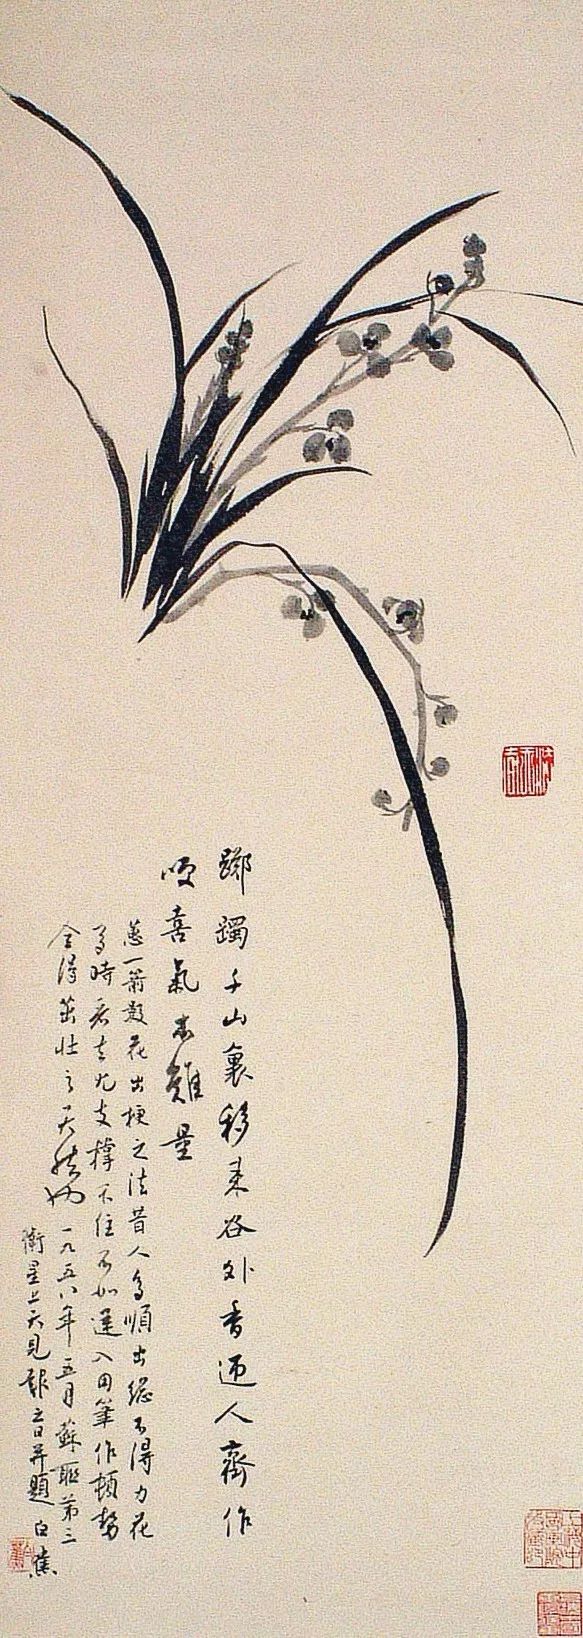 躑躅千山裏移来谷外香迎人齊作
咲喜氣難量
蕙一箭数花出梗之法昔人多順出總不得力花
多時看去尤支撐不住不如逆入用筆作頓勢
全得茁壯之天一九五八年五月蘇聯第三
衛星上天見報之日并題白蕉